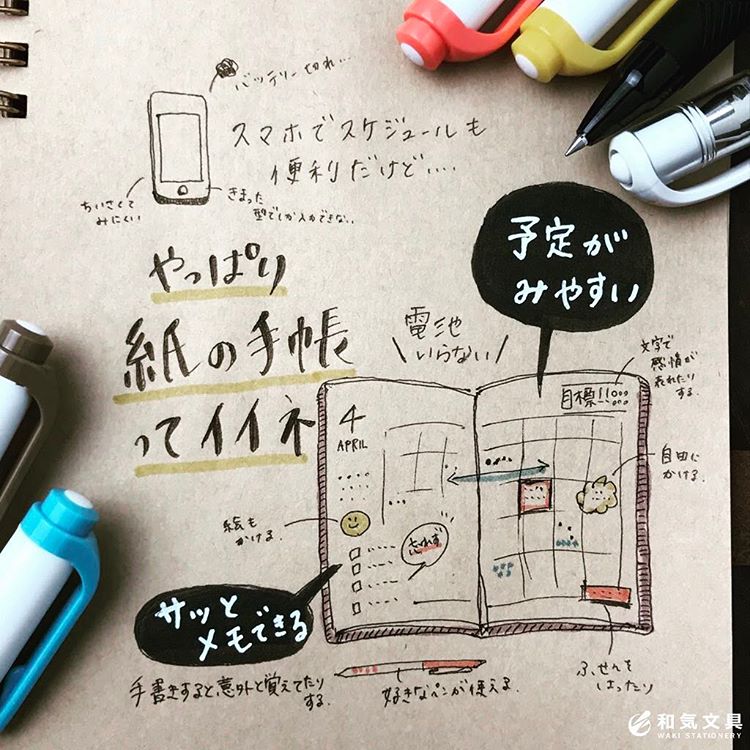 バッテリー切れ…
スマホでスケジュールも
便利だけど….
ちいさくて
みにくい
きまった
型でしか入力できない..
やっぱり
紙の手帳
ってイイネ
予定が
みやすい
電池
いらない
文字で
感情が
表れたり
する.
目標!!
4
APRIL
自由に
かける.
絵も
かける.
忘れず
サッと
メモできる
手書きすると意外と覚えてたり
する.
好きなペンが使える.
ふせんを
はったり
和気文具
WAKI STATIONERY